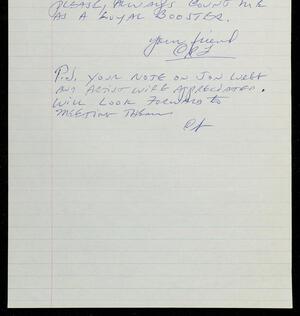 PLEASE, ALWAYS COUNT ME
AS A LOYAL BOOSTER.
your friend
P.S. YOUR NOTE ON JON WEBB
AND ARTIST WIFE APPRECIATED.
WILL LOOK FORWARD TO
MEETING THEM